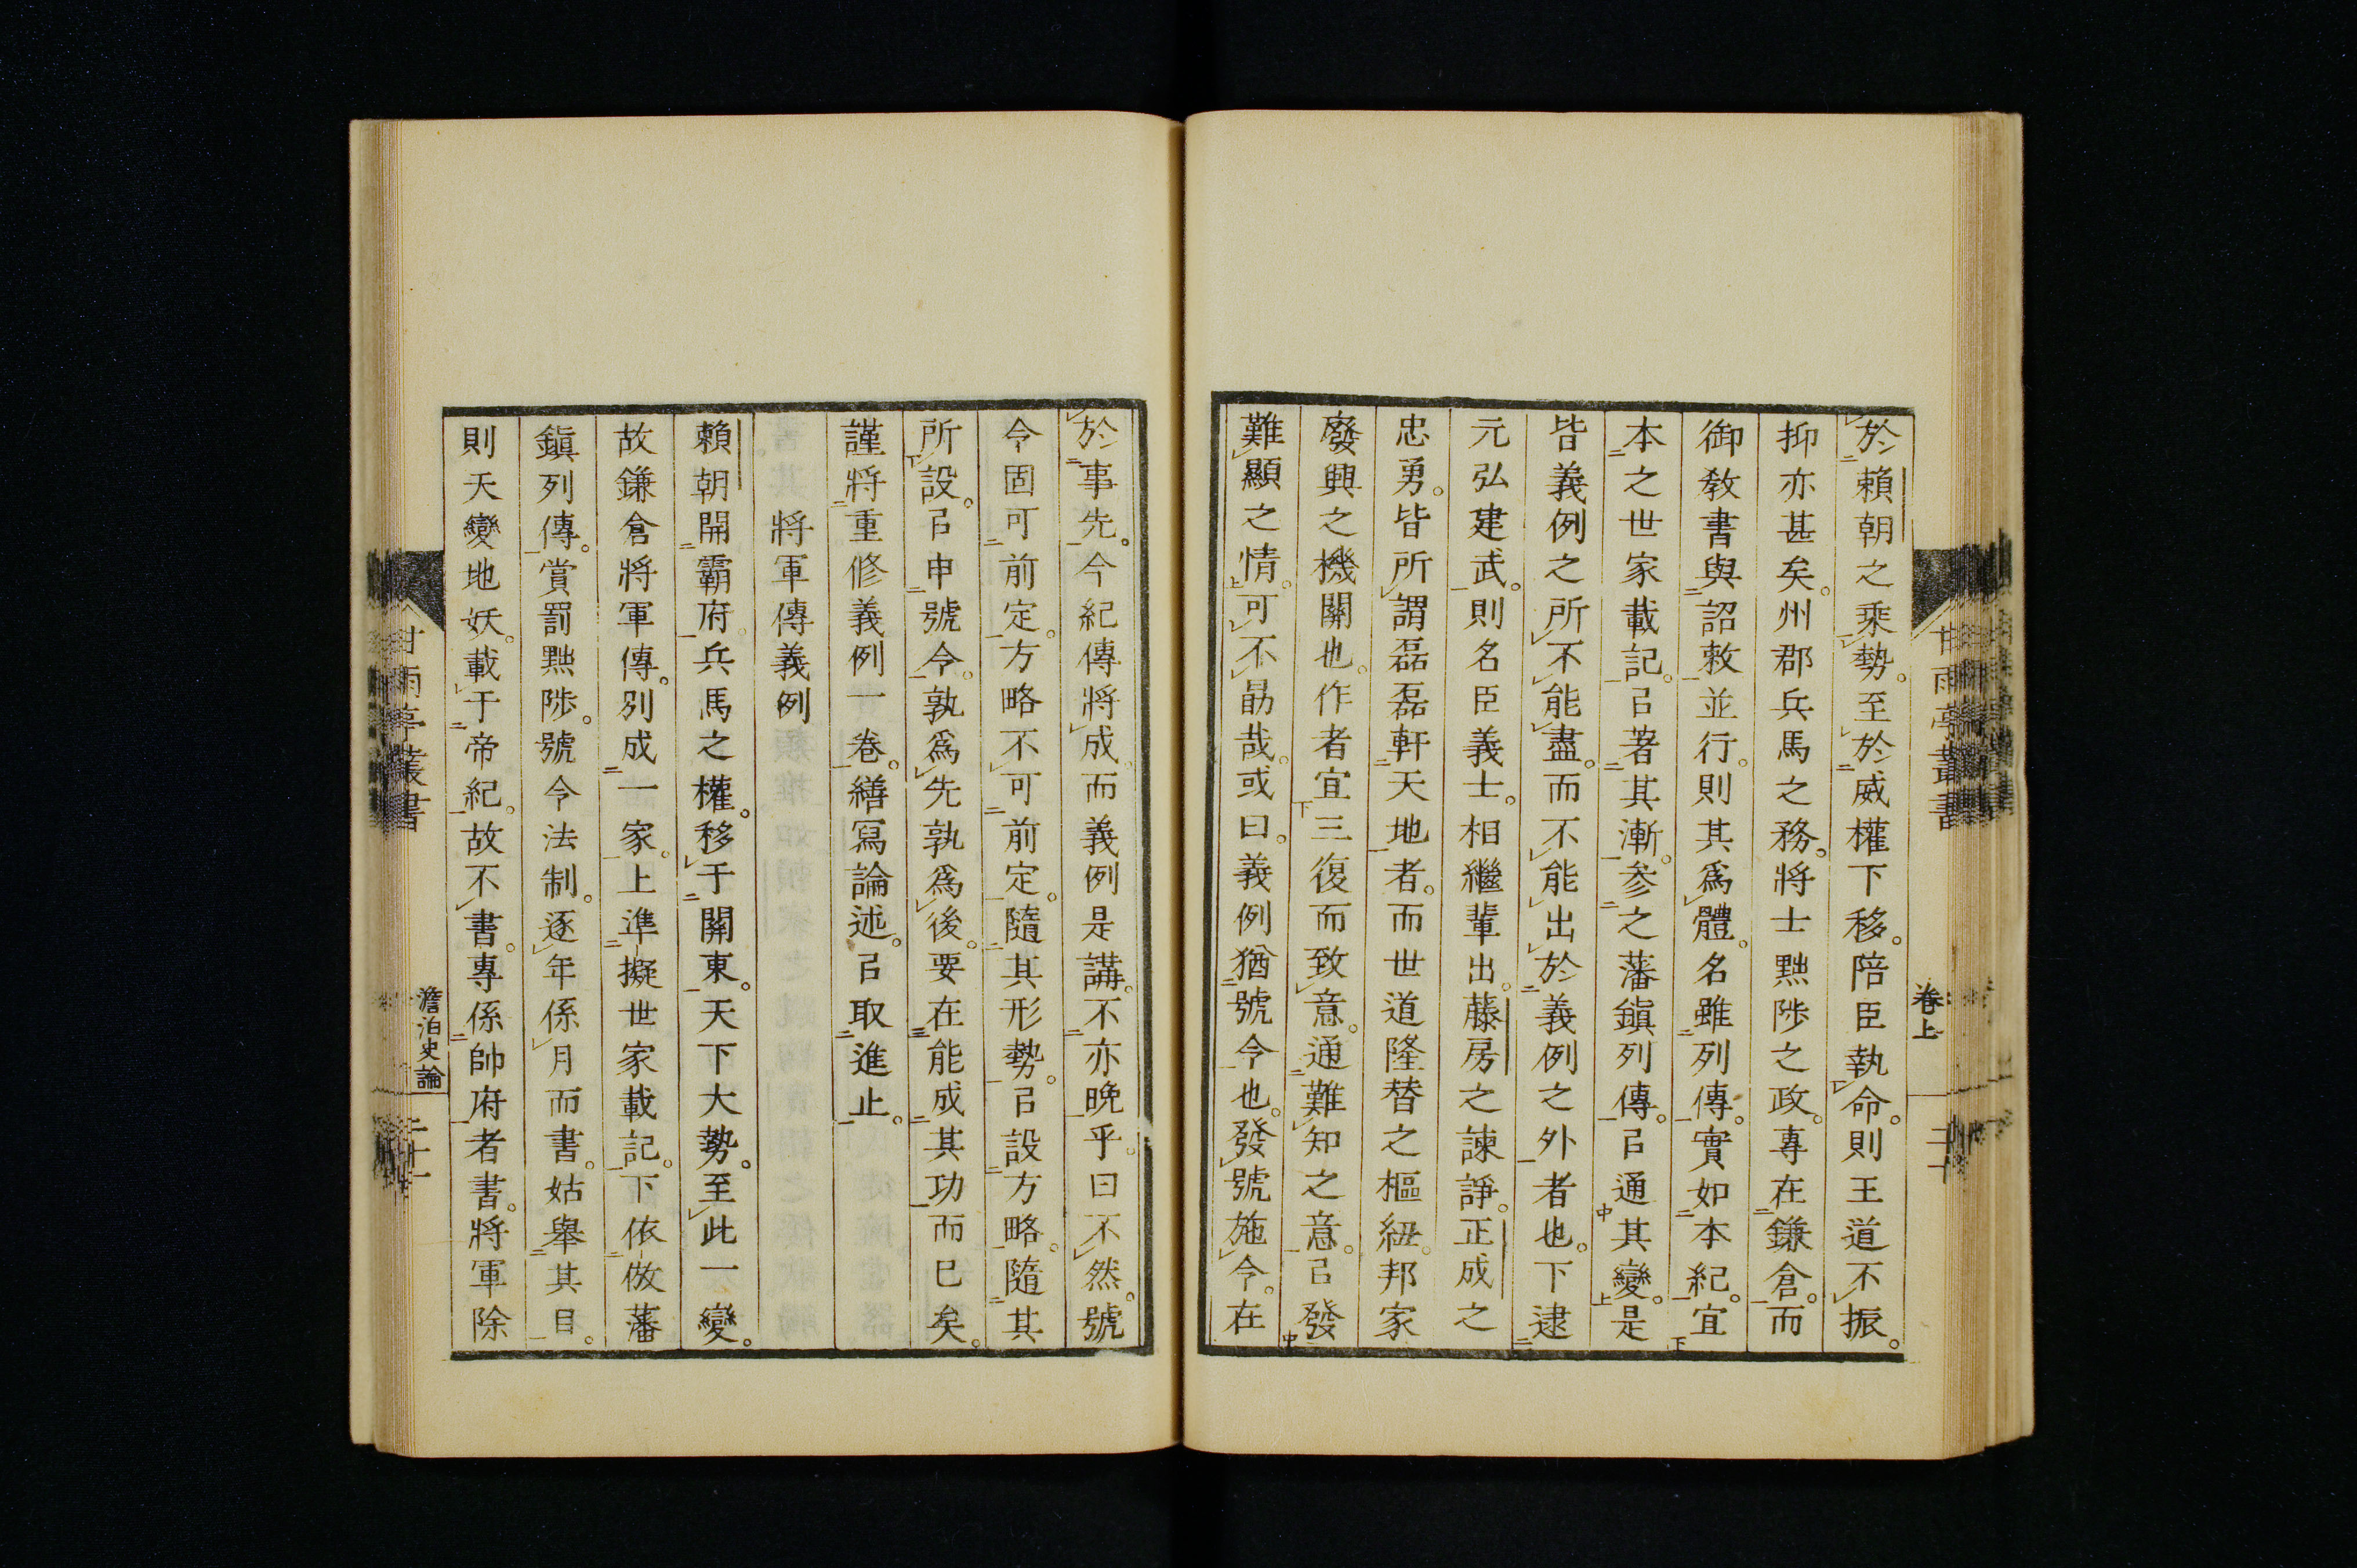 於賴朝之乘勢。至於威權下移。陪臣執命。則王道不振。
抑亦甚矣。州郡兵馬之務。將士黜陟之政。專在鎌倉。而
御敎書與詔敕並行。則其爲體。名雖列傳。實如本紀。宜
本之世家載記。㠯著其漸。參之藩鎭列傳。㠯通其變。是
皆義例之所不能盡。而不能出於義例之外者也。下逮
元弘建武。則名臣義士。相繼輩出。藤房之諫諍。正成之
忠勇。皆所謂磊磊軒天地者。而世道隆替之樞紐。邦家
廢興之機關也。作者宜三復而致意。通難知之意。㠯發
難顯之情。可不勗哉。或曰。義例猶號令也。發號施令。在
於事先。今紀傳將成。而義例是講。不亦晚乎。曰不然。號
令固可前定。方略不可前定。隨其形勢。㠯設方略。隨其
所設。㠯申號令。孰爲先孰爲後。要在能成其功而已矣。
謹將重修義例一卷。繕寫論述。㠯取進止。
將軍傳義例
賴朝開霸府。兵馬之權。移于關東。天下大勢。至此一變。
故鎌倉將軍傳。別成一家。上準擬世家載記。下依倣藩
鎭列傳。賞罰黜陟。號令法制。逐年係月而書。姑舉其目。
則天變地妖。載于帝紀。故不書。專係帥府者書。將軍除
甘雨亭叢書
卷上
二十
甘雨亭叢書
澹泊史論
二十一